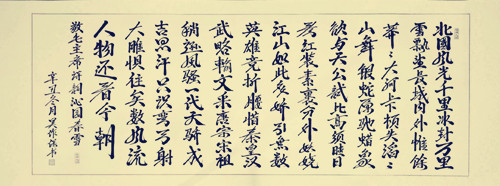 北國風光千里冰封万里
雪飘望長城内外惟餘
莽々大河上下顿失滔々
山舞银蛇原馳蜡象
欲与天公試比高須晴日
看红装素裹分外妖娆
江山如此多娇引無數
英雄竞折腰惜秦皇汉
武略輸文采唐宗宋祖
稍遜風骚一代天骄成
吉思汗只识弯弓射
大雕俱往矣数風流
人物还看今朝
毛主席诗詞沁园春雪
辛丑冬月